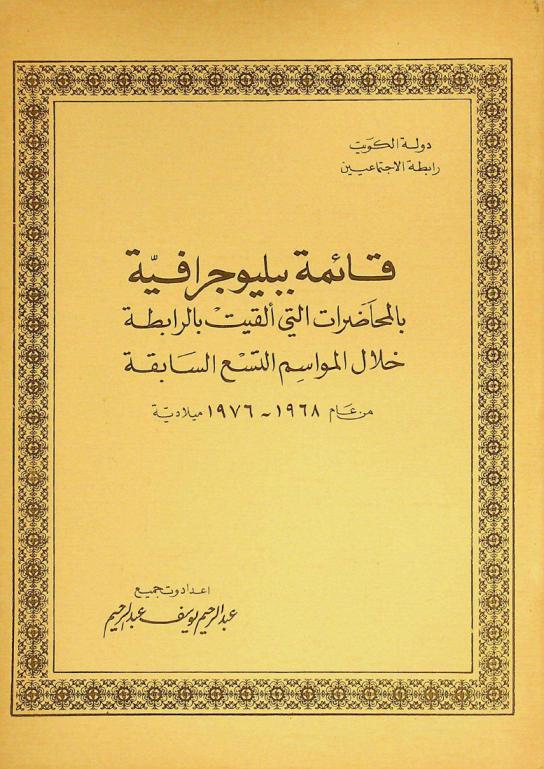 دولة الكويت
رابطة الاجتماعيين
قائمة ببليوجرافيّة
بالمحاضرات التي ألقيتْ بالرابطة
خلال المواسِم التسْع السَابقة
من عَام ١٩٦٨ ~ ١٩٧٦ ميلاديّة
اعداد وتجميع
عبد الرحيم يوسف عبد الرحيم